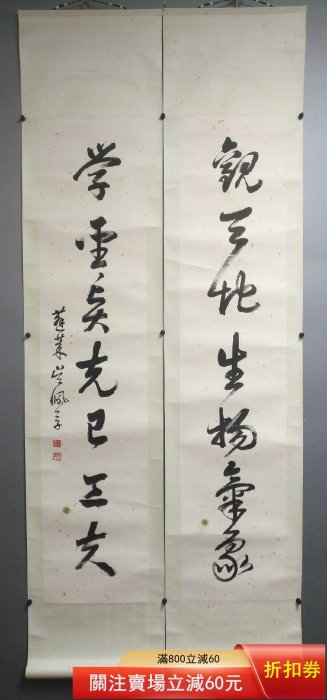 觀天地生物氣象
学聖賢克己工夫
蓬莱吴佩孚
滿800立減60
關注賣場立減60元
折扣券